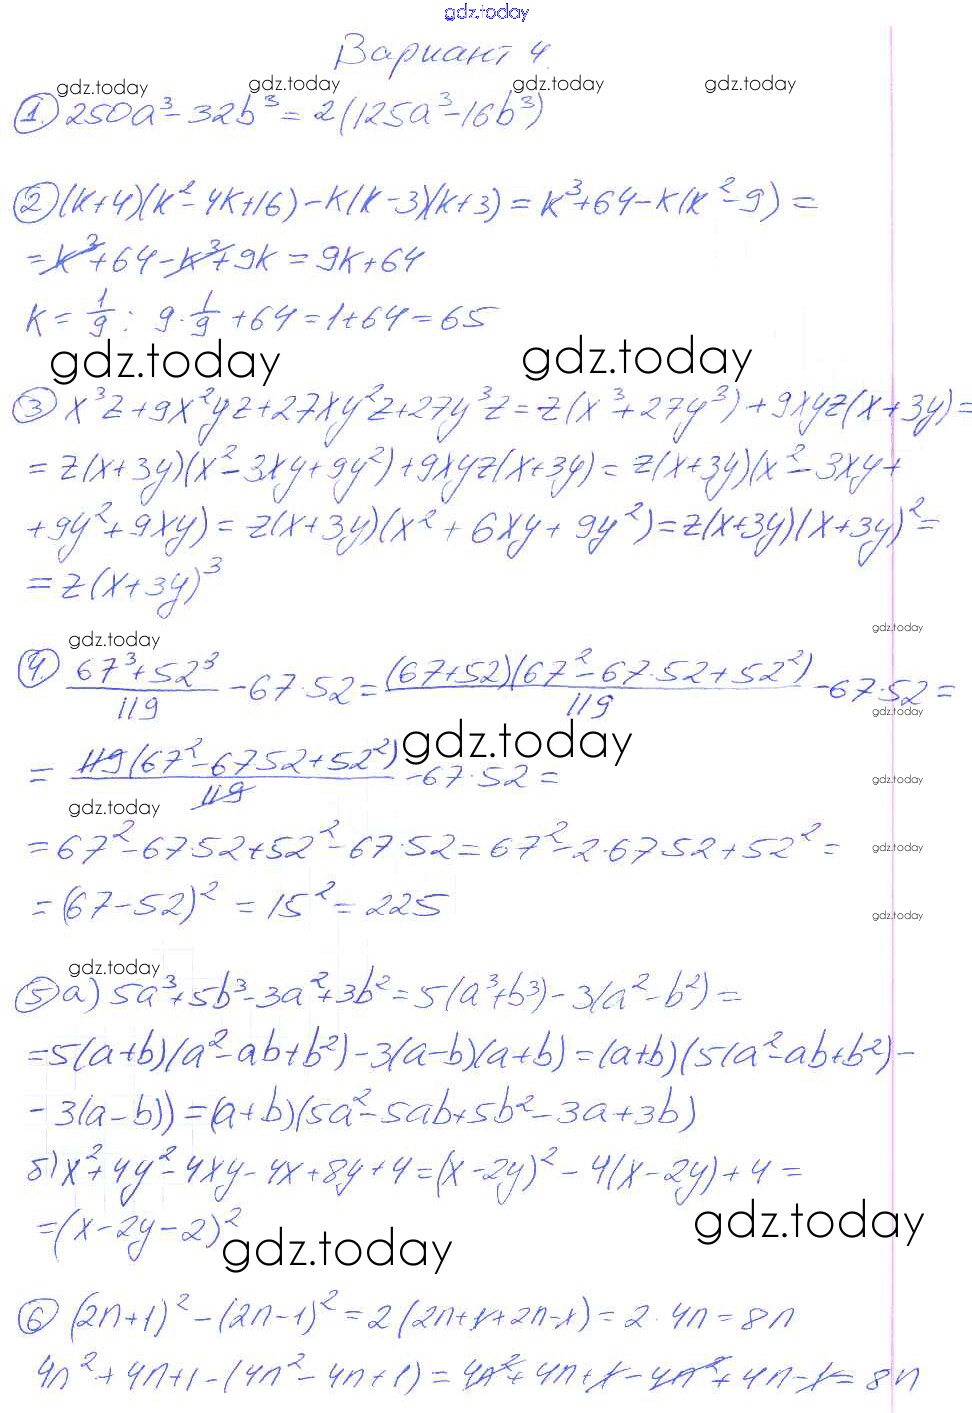 gdz.today
Вариант 4.
gdz.today gdz.today gdz.today gdz.today
1. 250a³ - 32b³ = 2(125a³ - 16b³)
2 (k+4)(k² - 4k + 16) - k(k - 3)(k + 3) = k³ + 64 - k(k² - 9) =
= k³ + 64 - k³ + 9k = 9k + 64
k = 1/9 : 9 · 1/9 + 64 = 1 + 64 = 65
gdz.today gdz.today
3 x³z + 9x²yz + 27xy²z + 27y³z = z(x³ + 27y³) + 9xyz(x + 3y) =
= z(x + 3y)(x² - 3xy + 9y²) + 9xyz(x + 3y) = z(x + 3y)(x² - 3xy +
+ 9y² + 9xy) = z(x + 3y)(x² + 6xy + 9y²) = z(x + 3y)(x + 3y)² =
= z(x + 3y)³
gdz.today gdz.today
4 (67³ + 52³)/119 - 67·52 = (67 + 52)(67² - 67·52 + 52²)/119 - 67·52 =
gdz.today
gdz.today
= 119(67² - 67·52 + 52²)/119 - 67·52 =
gdz.today
gdz.today
= 67² - 67·52 + 52² - 67·52 = 67² - 2·67·52 + 52² =
gdz.today
= (67 - 52)² = 15² = 225
gdz.today
gdz.today
5 а) 5a³ + 5b³ - 3a² + 3b² = 5(a³ + b³) - 3(a² - b²) =
= 5(a + b)(a² - ab + b²) - 3(a - b)(a + b) = (a + b)(5(a² - ab + b²) -
- 3(a - b)) = (a + b)(5a² - 5ab + 5b² - 3a + 3b)
б) x² + 4y² - 4xy - 4x + 8y + 4 = (x - 2y)² - 4(x - 2y) + 4 =
= (x - 2y - 2)²
gdz.today gdz.today
6 (2n + 1)² - (2n - 1)² = 2(2n + 1 + 2n - 1) = 2 · 4n = 8n
4n² + 4n + 1 - (4n² - 4n + 1) = 4n² + 4n + 1 - 4n² + 4n - 1 = 8n